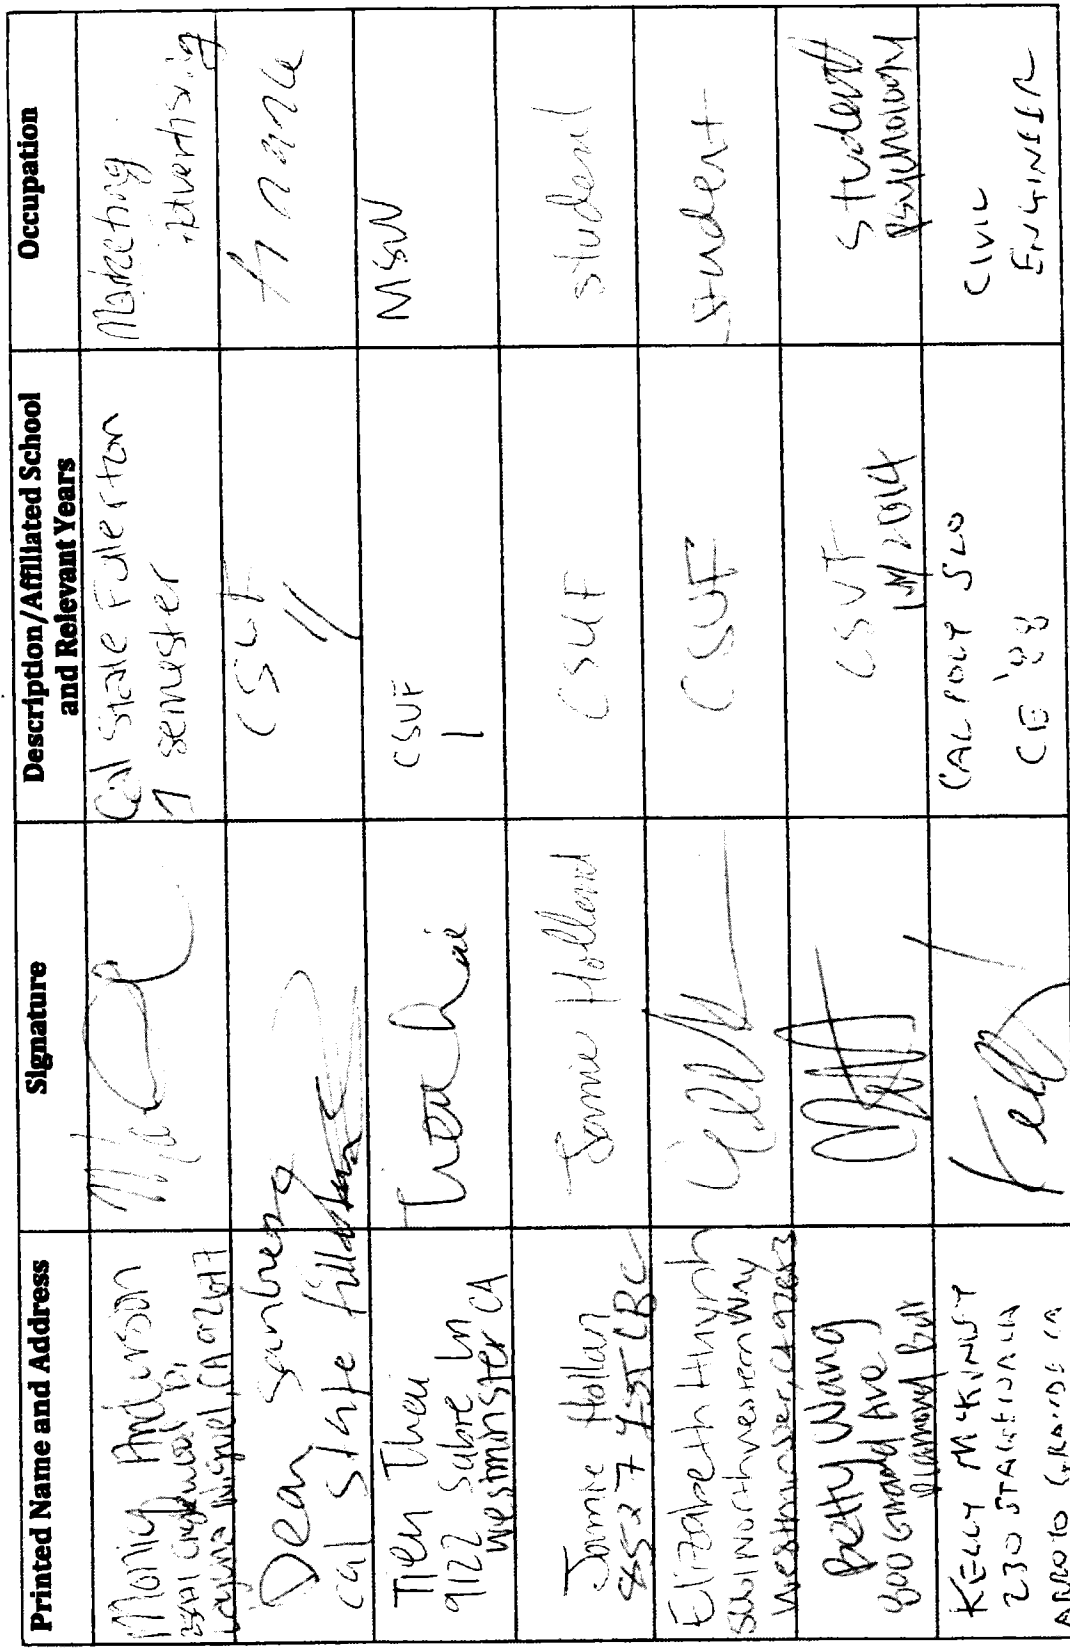 Printed Name and Address Signature Description/Affiliated School and Relevant Years Occupation
Monica Anderson
Laguna Niguel, CA 92677
Cal State Fullerton
1 semester
Marketing
Advertising
Dean
cal state fullerton
CSUF
11
finance
Tien Thai
9122 Sabre Ln
Westminster CA
Tien Thai
CSUF
1
MSW
Jamie Hollan
Jamie Holland
CSUF
student
Elizabeth Huynh
Northwestern Way
Westminster, CA 92683
CSUF
student
Betty Wang
800 Grand Ave
Diamond Bar
CSUF
2014
Student
Psychology
KELLY McKINLEY
230
ARROYO GRANDE CA
Kelly
CAL POLY SLO
CE '88
CIVIL
ENGINEER